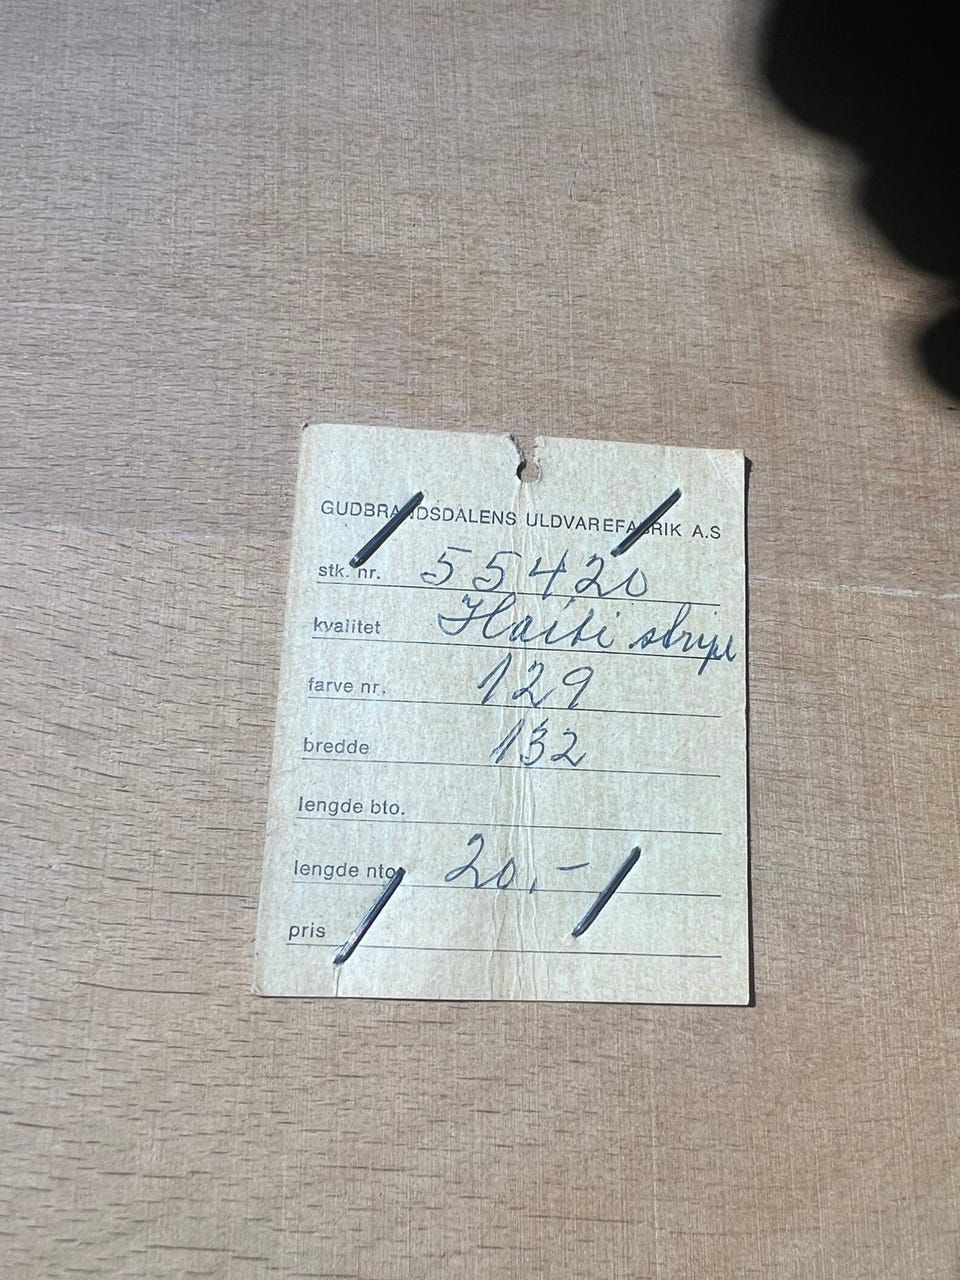 GUDBRANDSDALENS ULDVAREFABRIK A.S
stk. nr. 55420
kvalitet Haiti stripe
farve nr. 129
bredde 132
lengde bto.
lengde nto. 20.-
pris